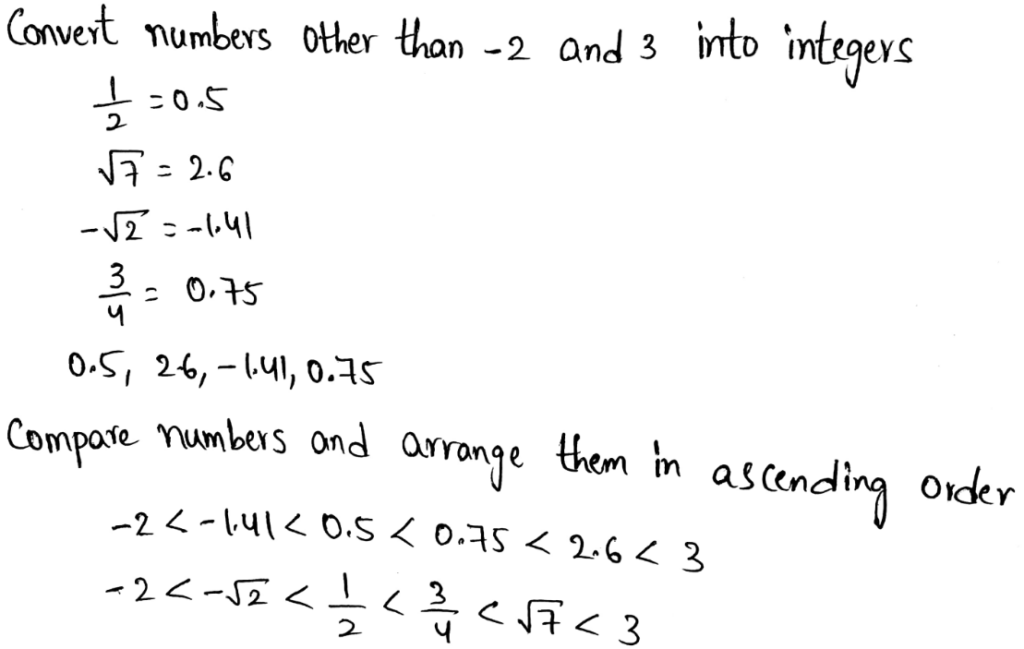 Convert numbers other than -2 and 3 into integers
1/2 = 0.5
√7 = 2.6
-√2 = -1.41
3/4 = 0.75
0.5, 2.6, -1.41, 0.75
Compare numbers and arrange them in ascending order
-2 < -1.41 < 0.5 < 0.75 < 2.6 < 3
-2 < -√2 < 1/2 < 3/4 < √7 < 3